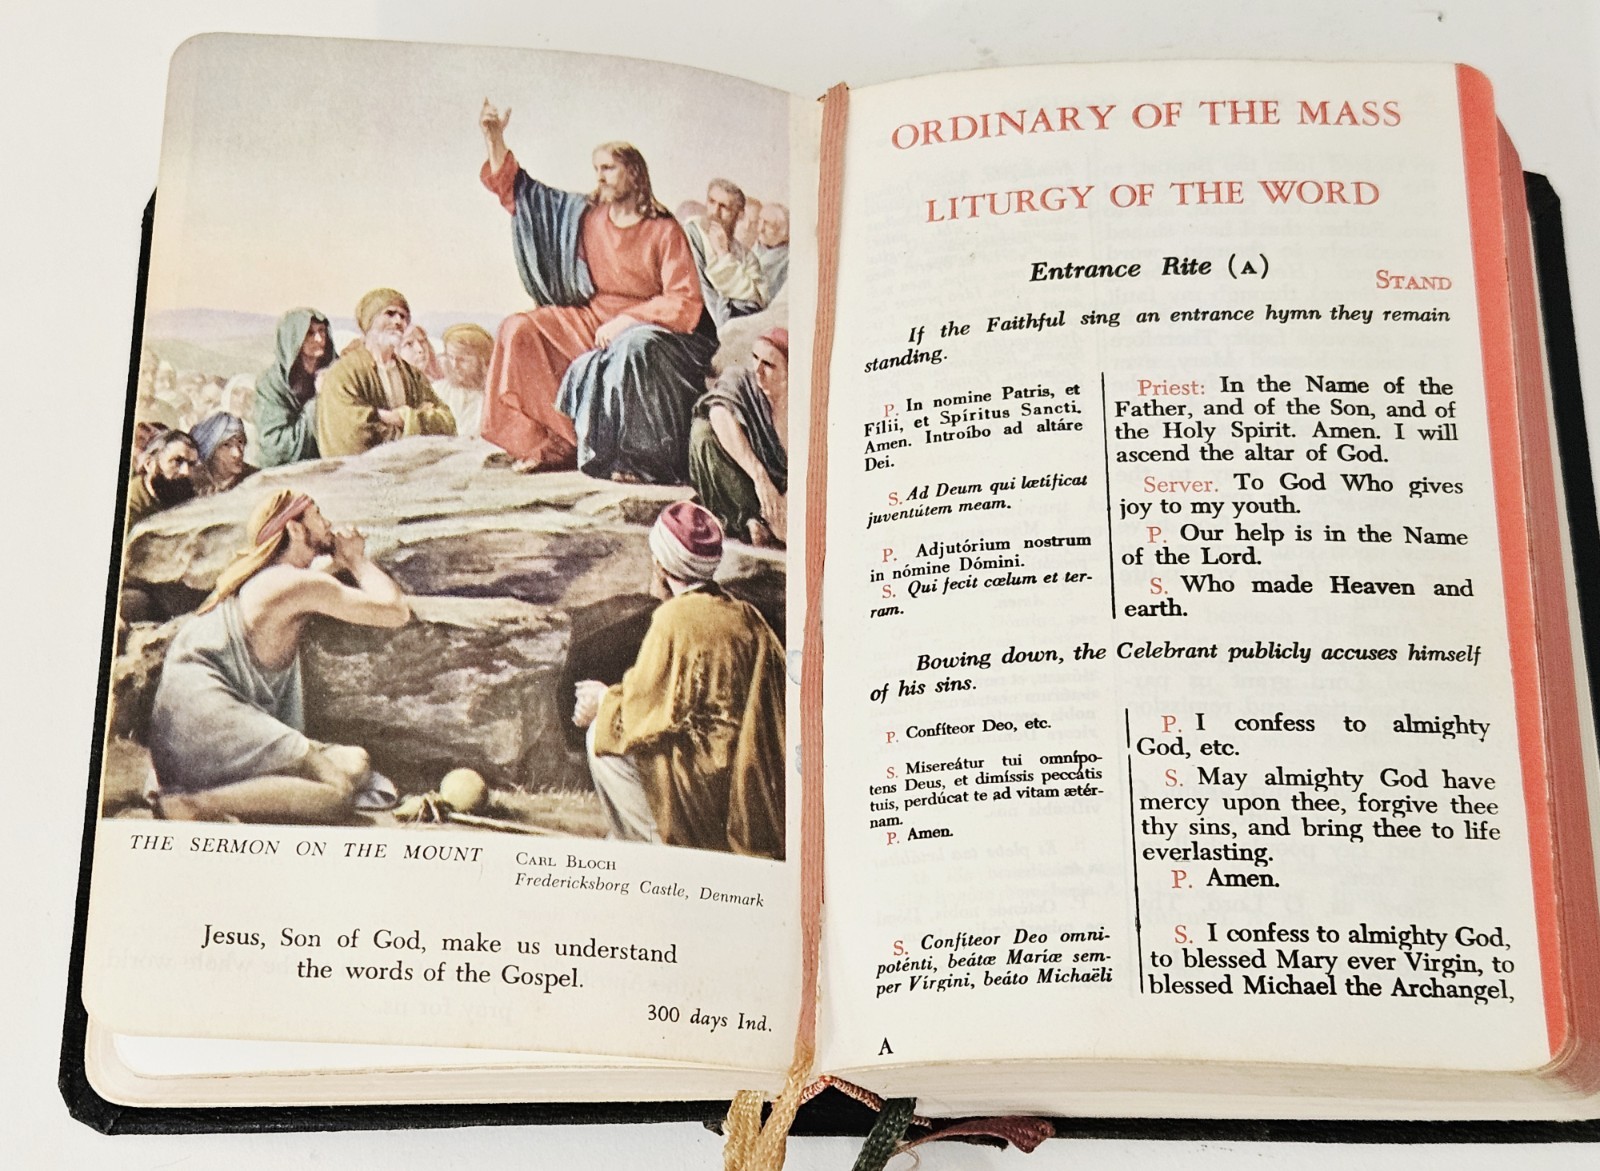 THE SERMON ON THE MOUNT
CARL BLOCH
Fredericksborg Castle, Denmark
Jesus, Son of God, make us understand
the words of the Gospel.
300 days Ind.
ORDINARY OF THE MASS
LITURGY OF THE WORD
Entrance Rite (A)
STAND
If the Faithful sing an entrance hymn they remain
standing.
P. In nomine Patris, et
Fílii, et Spíritus Sancti.
Amen. Introíbo ad altáre
Dei.
S. Ad Deum qui lætíficat
juventútem meam.
P. Adjutórium nostrum
in nómine Dómini.
S. Qui fecit cœlum et ter-
ram.
Priest: In the Name of the
Father, and of the Son, and of
the Holy Spirit. Amen. I will
ascend the altar of God.
Server. To God Who gives
joy to my youth.
P. Our help is in the Name
of the Lord.
S. Who made Heaven and
earth.
Bowing down, the Celebrant publicly accuses himself
of his sins.
P. Confíteor Deo, etc.
S. Misereátur tui omnípo-
tens Deus, et dimíssis peccátis
tuis, perdúcat te ad vitam ætér-
nam.
P. Amen.
S. Confíteor Deo omni-
poténti, beátæ Maríæ sem-
per Vírgini, beáto Michaéli
P. I confess to almighty
God, etc.
S. May almighty God have
mercy upon thee, forgive thee
thy sins, and bring thee to life
everlasting.
P. Amen.
S. I confess to almighty God,
to blessed Mary ever Virgin, to
blessed Michael the Archangel,
A